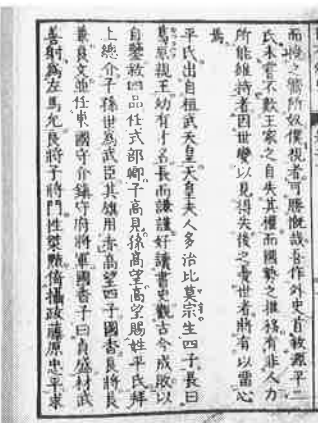 而挽之嘗所奴僕視者可勝慨哉吾作外史首敘源平二
氏未嘗不歎王家之自失其權而國勢之推移有非人力
所能維持者因世變以見得失後之憂世者將有以留心
焉
平氏出自桓武天皇天皇夫人多治比莫宗生四子長曰
葛原親王幼有才名長而謙謹好讀書史觀古今成敗以
自鑒敘四品任式部卿子高見孫高望高望賜姓平氏拜
上總介子孫世爲武臣其旗用赤高望四子國香良將良
兼良文並任東國守介鎮守府將軍國香子曰貞盛材武
善射爲左馬允良將子將門性桀黠倚攝政藤原忠平求